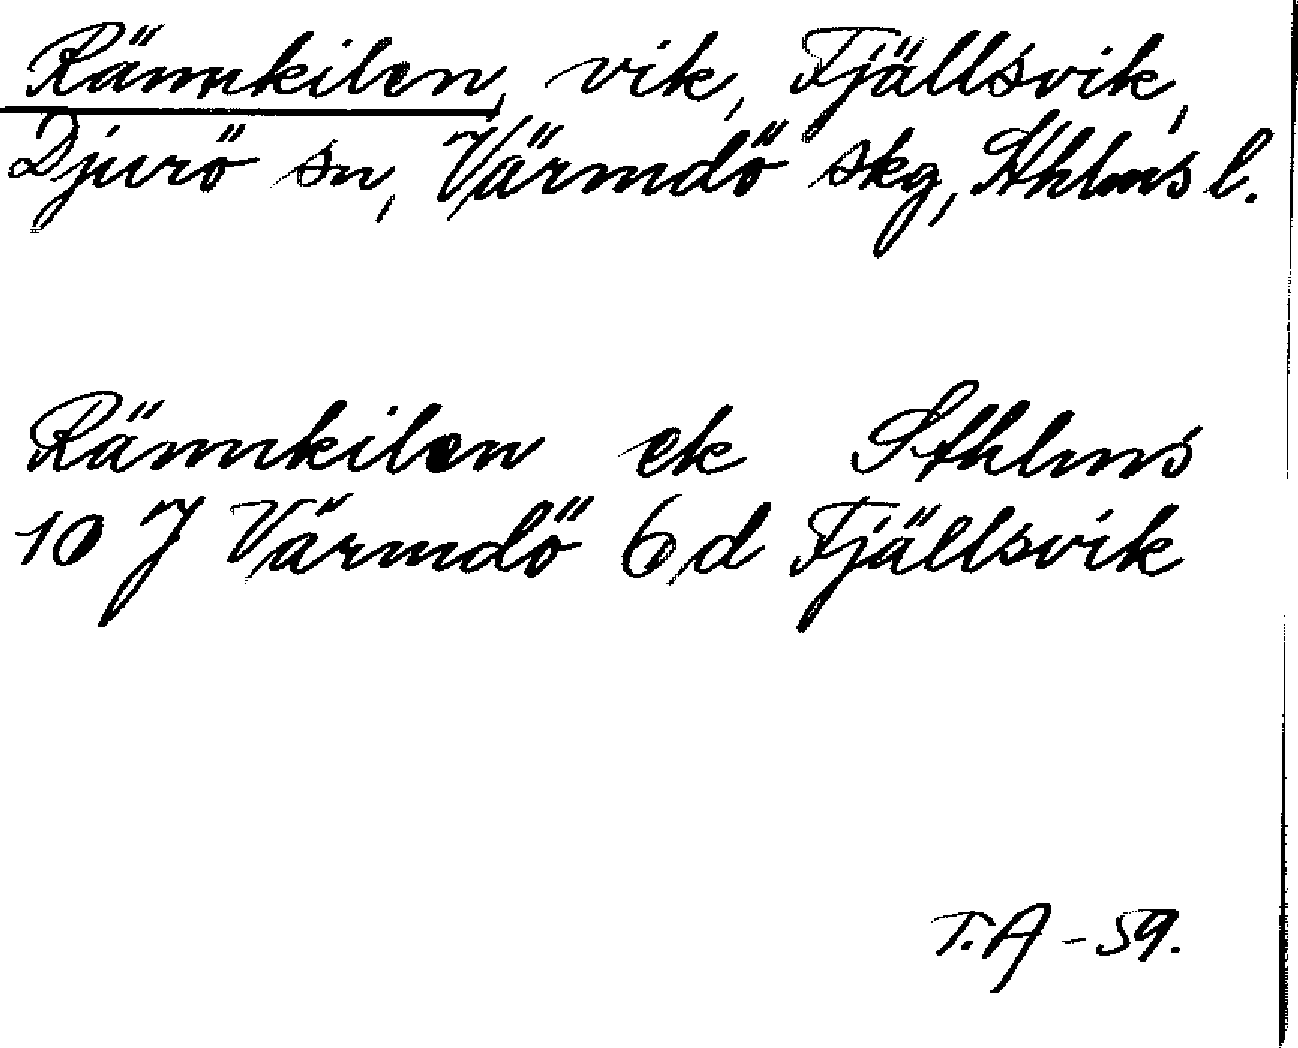 Rännkilen, vik, Fjällsvik,
Djurö sn, Värmdö skg, Sthlms l.
Rännkilen ek Sthlms
10 J Värmdö 6d Fjällsvik
T.A - 59.